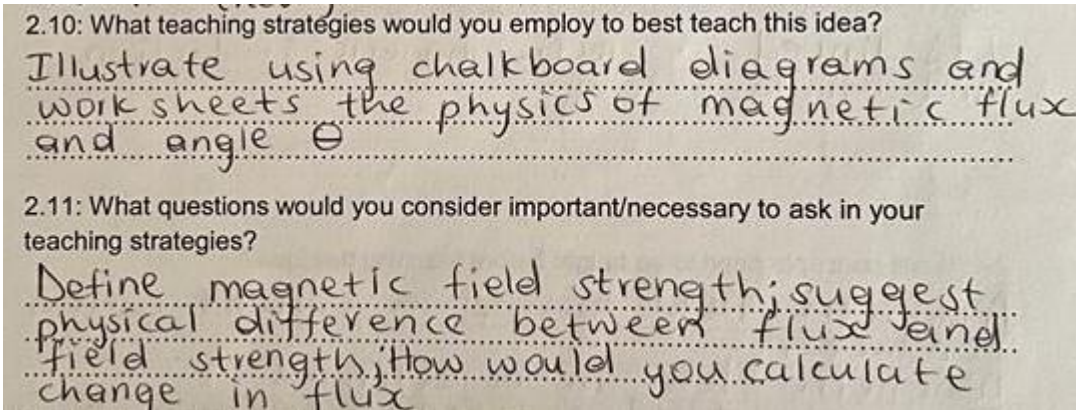 2.10: What teaching strategies would you employ to best teach this idea?
Illustrate using chalkboard diagrams and
work sheets the physics of magnetic flux
and angle θ
2.11: What questions would you consider important/necessary to ask in your
teaching strategies?
Define magnetic field strength; suggest
physical difference between flux and
field strength; How would you calculate
change in flux